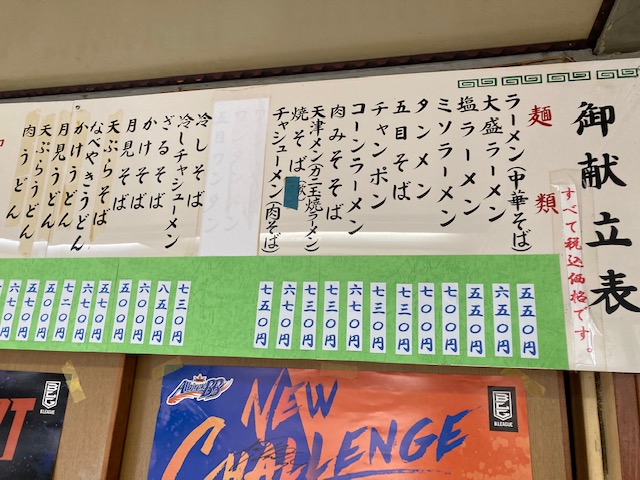 御献立表
すべて税込価格です。
麺類
ラーメン(中華そば)
大盛ラーメン
塩ラーメン
ミソラーメン
タンメン
五目そば
チャンポン
コーンラーメン
肉みそそば
天津メン(カニ玉焼ラーメン)
焼そば
チャシューメン(肉そば)
冷しそば
冷しチャシューメン
ざるそば
かけそば
月見そば
天ぷらそば
なべやきうどん
かけうどん
月見うどん
天ぷらうどん
肉うどん
五五〇円
六五〇円
五五〇円
五五〇円
七〇〇円
七三〇円
七三〇円
六七〇円
七三〇円
七三〇円
六七〇円
七五〇円
七三〇円
八五〇円
六〇〇円
五〇〇円
五五〇円
六五〇円
七二〇円
五〇〇円
五五〇円
六七〇円
Albirex BB
NEW
CHALLENGE
B.LEAGUE
B.LEAGUE